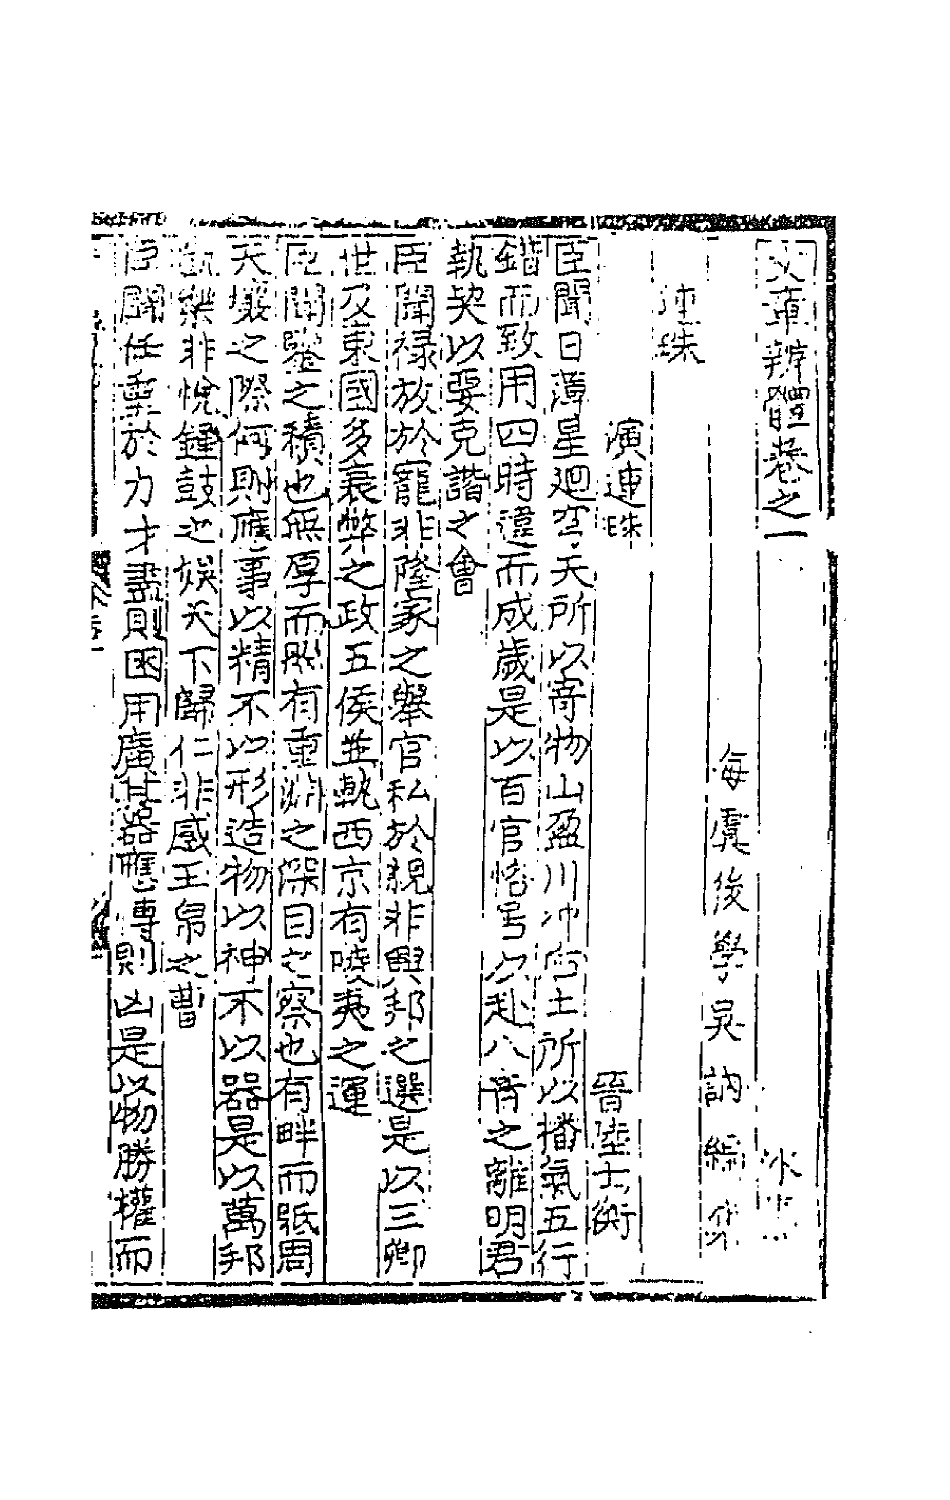 文章辨體卷之一
海虞後學吳訥編集
連珠
演連珠
晉陸士衡
臣聞日薄星廻穹天所以寄物山盈川冲后土所以播氣五行
錯而致用四時違而成歲是以百官恪居以赴八音之離明君
執契以要克諧之會
臣聞祿放於寵非隆家之舉官私於親非興邦之選是以三卿
世及東國多衰弊之政五侯並軌西京有陵夷之運
臣聞鑒之積也無厚而照有重淵之深目之察也有畔而眡周
天壤之際何則應事以精不以形造物以神不以器是以萬邦
凱樂非悅鐘鼓之娛天下歸仁非感玉帛之惠
臣聞任重於力才盡則困用廣其器應博則凶是以物勝權而